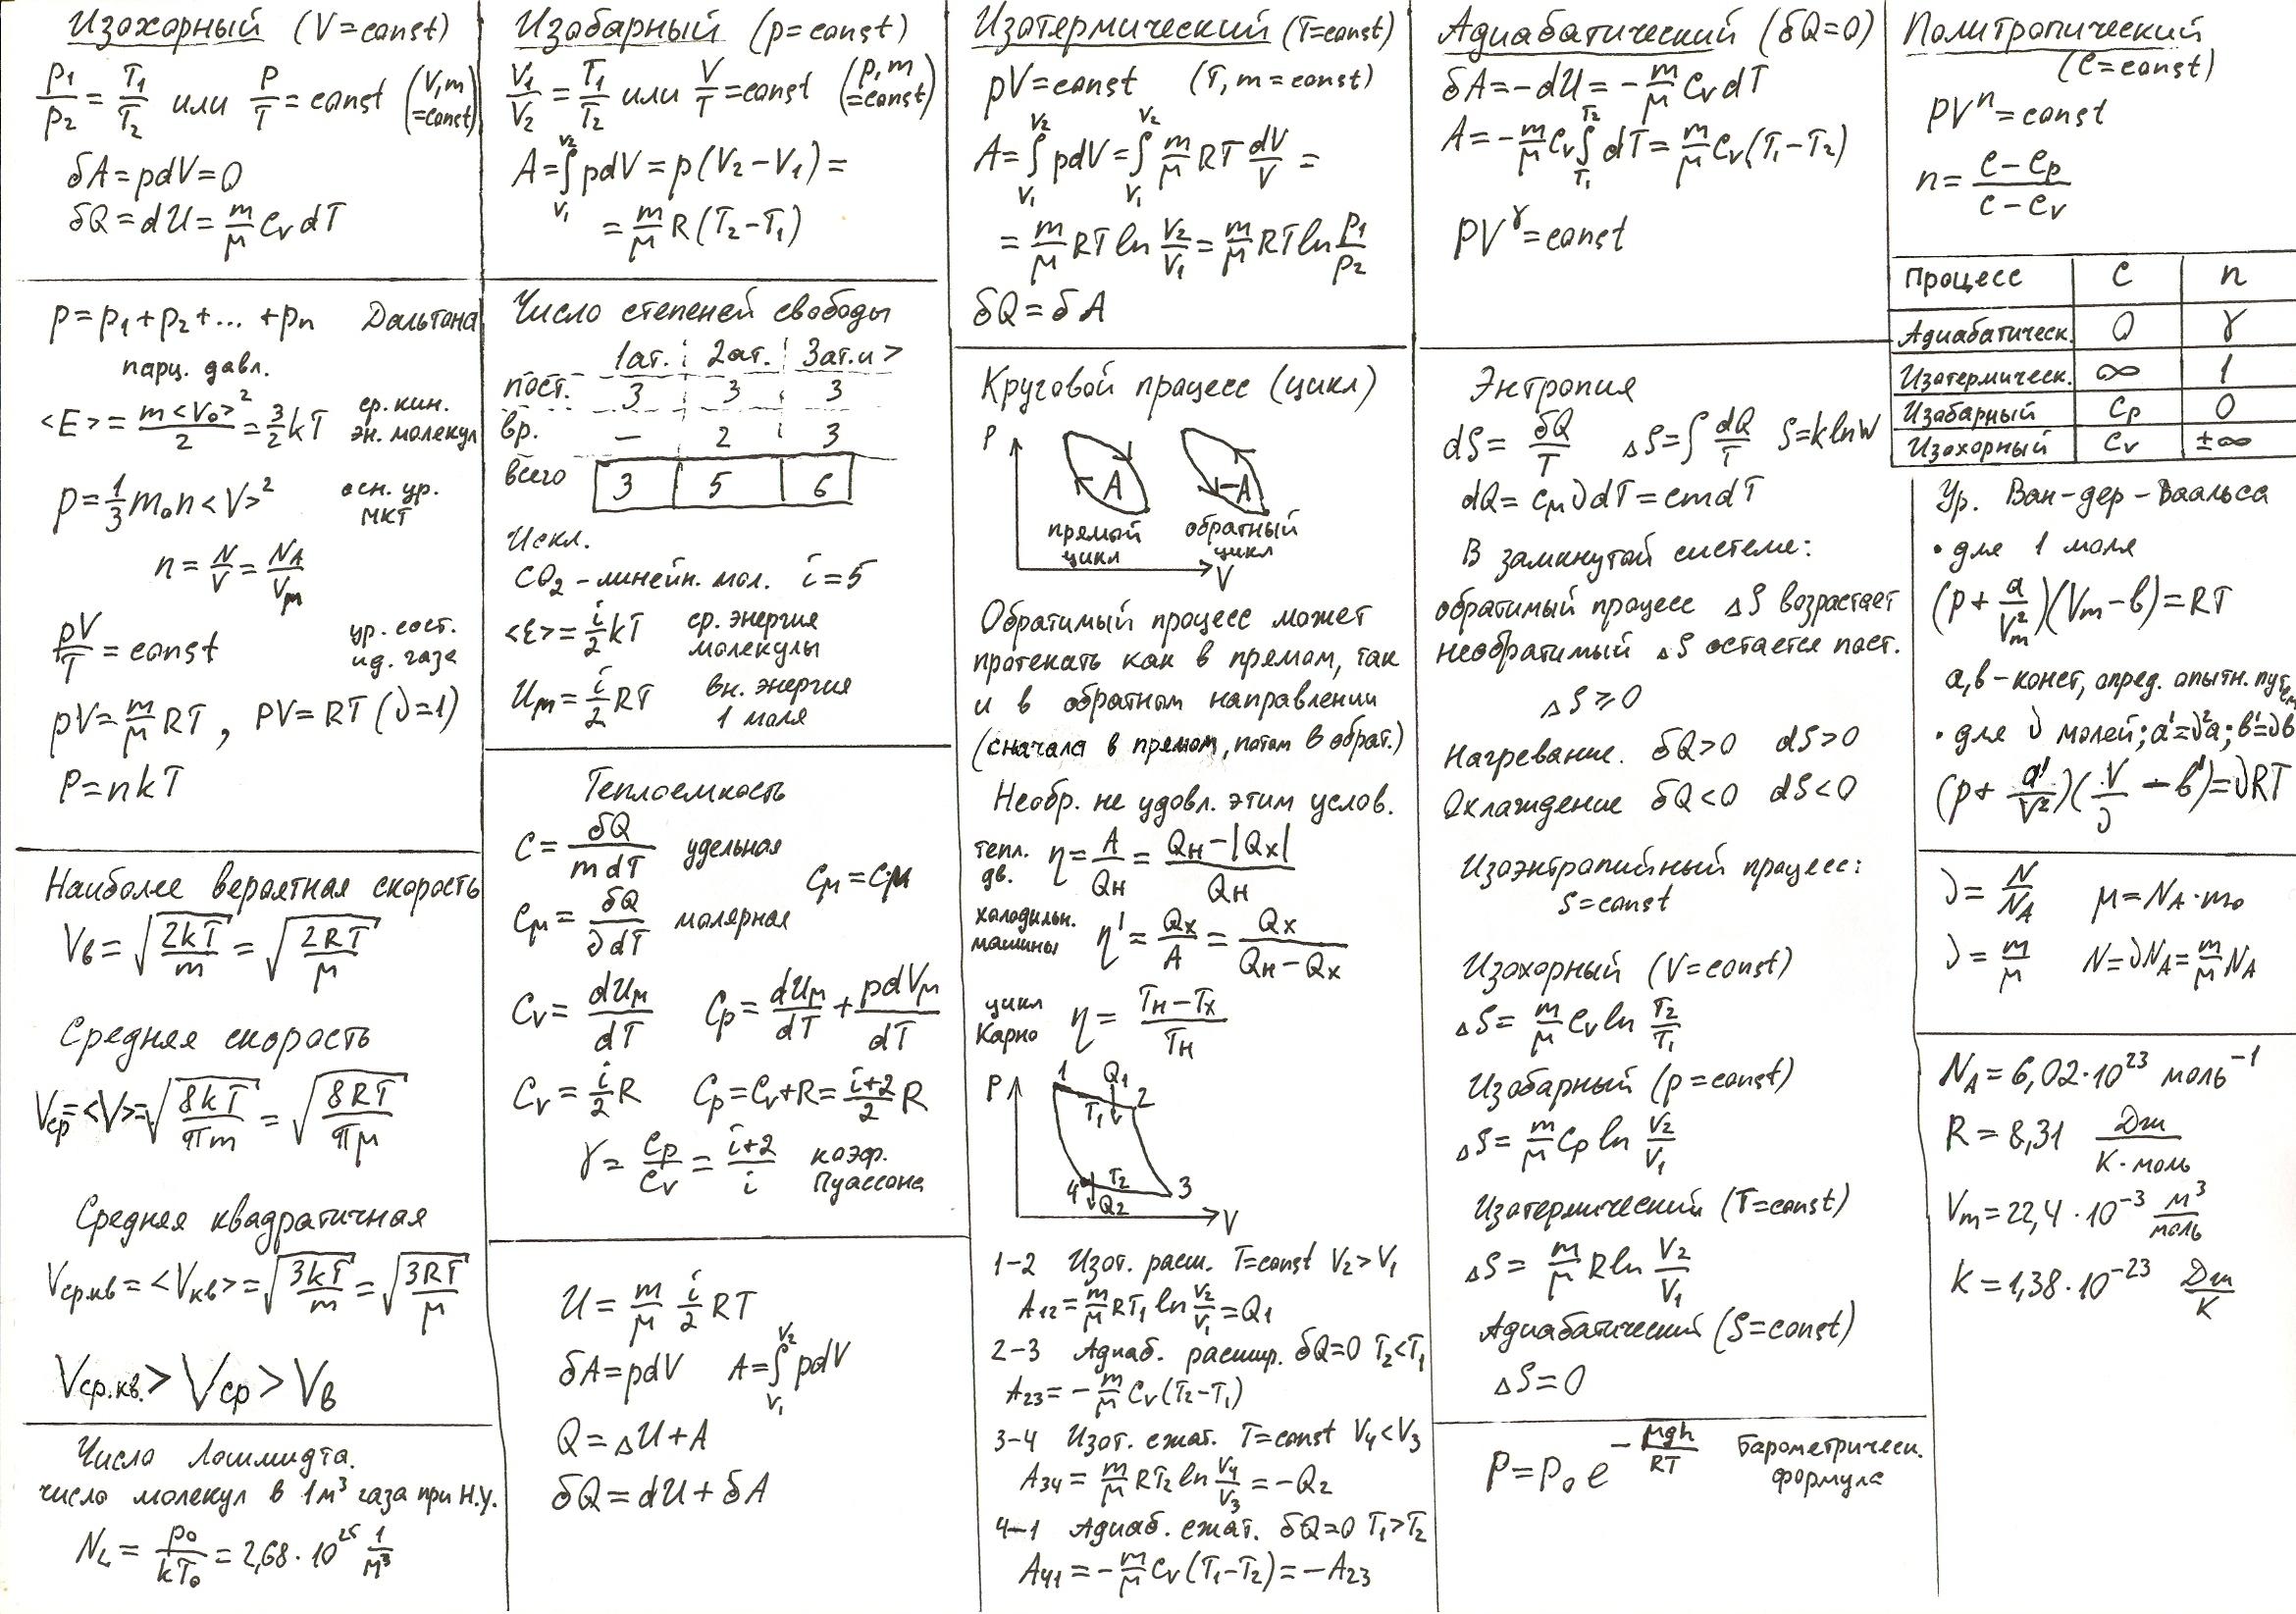 Изохорный (V=const)
p₁/p₂ = T₁/T₂ или P/T = const (V,m =const)
δA = pdV = 0
δQ = dU = m/μ Cv dT
p = p₁ + p₂ + ... + pn Дальтона
парц. давл.
<E> = m<V₀>²/2 = 3/2 kT ср. кин. эн. молекул
p = 1/3 m₀n<V>² осн. ур. МКТ
n = N/V = NA/Vμ
pV/T = const ур. сост. ид. газа
pV = m/μ RT, PV = RT (ν=1)
P = nkT
Наиболее вероятная скорость
Vв = √(2kT/m) = √(2RT/μ)
Средняя скорость
Vср = <V> = √(8kT/πm) = √(8RT/πμ)
Средняя квадратичная
Vср.кв = <Vкв> = √(3kT/m) = √(3RT/μ)
Vср.кв. > Vср > Vв
Число Лошмидта.
число молекул в 1м³ газа при Н.У.
NL = p₀/kT₀ = 2,68·10²⁵ 1/м³
Изобарный (p=const)
V₁/V₂ = T₁/T₂ или V/T = const (p,m =const)
A = ∫V₁V₂ pdV = p(V₂-V₁) =
= m/μ R(T₂-T₁)
Число степеней свободы
1ат. 2ат. 3ат.и >
пост. 3 3 3
вр. — 2 3
всего 3 5 6
Искл.
CO₂ - линейн. мол. i=5
<ε> = i/2 kT ср. энергия молекулы
Uм = i/2 RT вн. энергия 1 моля
Теплоемкость
C = δQ/mdT удельная
Cμ = Cμ
Cμ = δQ/νdT молярная
Cv = dUμ/dT Cp = dUμ/dT + pdVμ/dT
Cv = i/2 R Cp = Cv+R = i+2/2 R
γ = Cp/Cv = i+2/i коэф. Пуассона
U = m/μ i/2 RT
δA = pdV A = ∫V₁V₂ pdV
Q = ΔU + A
δQ = dU + δA
Изотермический (T=const)
pV = const (T, m = const)
A = ∫V₁V₂ pdV = ∫V₁V₂ m/μ RT dV/V =
= m/μ RT ln V₂/V₁ = m/μ RT ln p₁/p₂
δQ = δA
Круговой процесс (цикл)
P
A -A
прямой цикл обратный цикл
V
Обратимый процесс может
протекать как в прямом, так
и в обратном направлении
(сначала в прямом, потом в обрат.)
Необр. не удовл. этим услов.
тепл. дв. η = A/Qн = Qн-|Qх|/Qн
холодильн. машины η' = Qх/A = Qх/Qн-Qх
цикл Карно η = Tн-Tх/Tн
P 1 Q₁
T₁ 2
4 T₂ 3
Q₂
V
1-2 Изот. расш. T=const V₂>V₁
A₁₂ = m/μ RT₁ ln V₂/V₁ = Q₁
2-3 Адиаб. расшир. δQ=0 T₂<T₁
A₂₃ = -m/μ Cv(T₂-T₁)
3-4 Изот. сжат. T=const V₄<V₃
A₃₄ = m/μ RT₂ ln V₄/V₃ = -Q₂
4-1 Адиаб. сжат. δQ=0 T₁>T₂
A₄₁ = -m/μ Cv(T₁-T₂) = -A₂₃
Адиабатический (δQ=0)
δA = -dU = -m/μ Cv dT
A = -m/μ Cv ∫T₁T₂ dT = m/μ Cv(T₁-T₂)
PVᵞ = const
Энтропия
dS = δQ/T ΔS = ∫ dQ/T S = k ln W
dQ = Cμ νdT = cmdT
В замкнутой системе:
обратимый процесс ΔS возрастает
необратимый ΔS остается пост.
ΔS ⩾ 0
Нагревание. δQ>0 dS>0
Охлаждение δQ<0 dS<0
Изоэнтропийный процесс:
S=const
Изохорный (V=const)
ΔS = m/μ Cv ln T₂/T₁
Изобарный (p=const)
ΔS = m/μ Cp ln V₂/V₁
Изотермический (T=const)
ΔS = m/μ R ln V₂/V₁
Адиабатический (S=const)
ΔS = 0
P = P₀ e^(-μgh/RT) Барометрическ. формула
Политропический
(C=const)
PVⁿ = const
n = C-Cp/C-Cv
Процесс C n
Адиабатическ. 0 γ
Изотермическ. ∞ 1
Изобарный Cp 0
Изохорный Cv ±∞
Ур. Ван-дер-Ваальса
• для 1 моля
(p + a/Vm²)(Vm-b) = RT
a,b - конст, опред. опытн. путем
• для ν молей; a'=ν²a; b'=νb
(p + a'/V²)(V/ν - b') = νRT
ν = N/NA μ = NA·m₀
ν = m/μ N = νNA = m/μ NA
NA = 6,02·10²³ моль⁻¹
R = 8,31 Дж/К·моль
Vm = 22,4·10⁻³ м³/моль
k = 1,38·10⁻²³ Дж/К